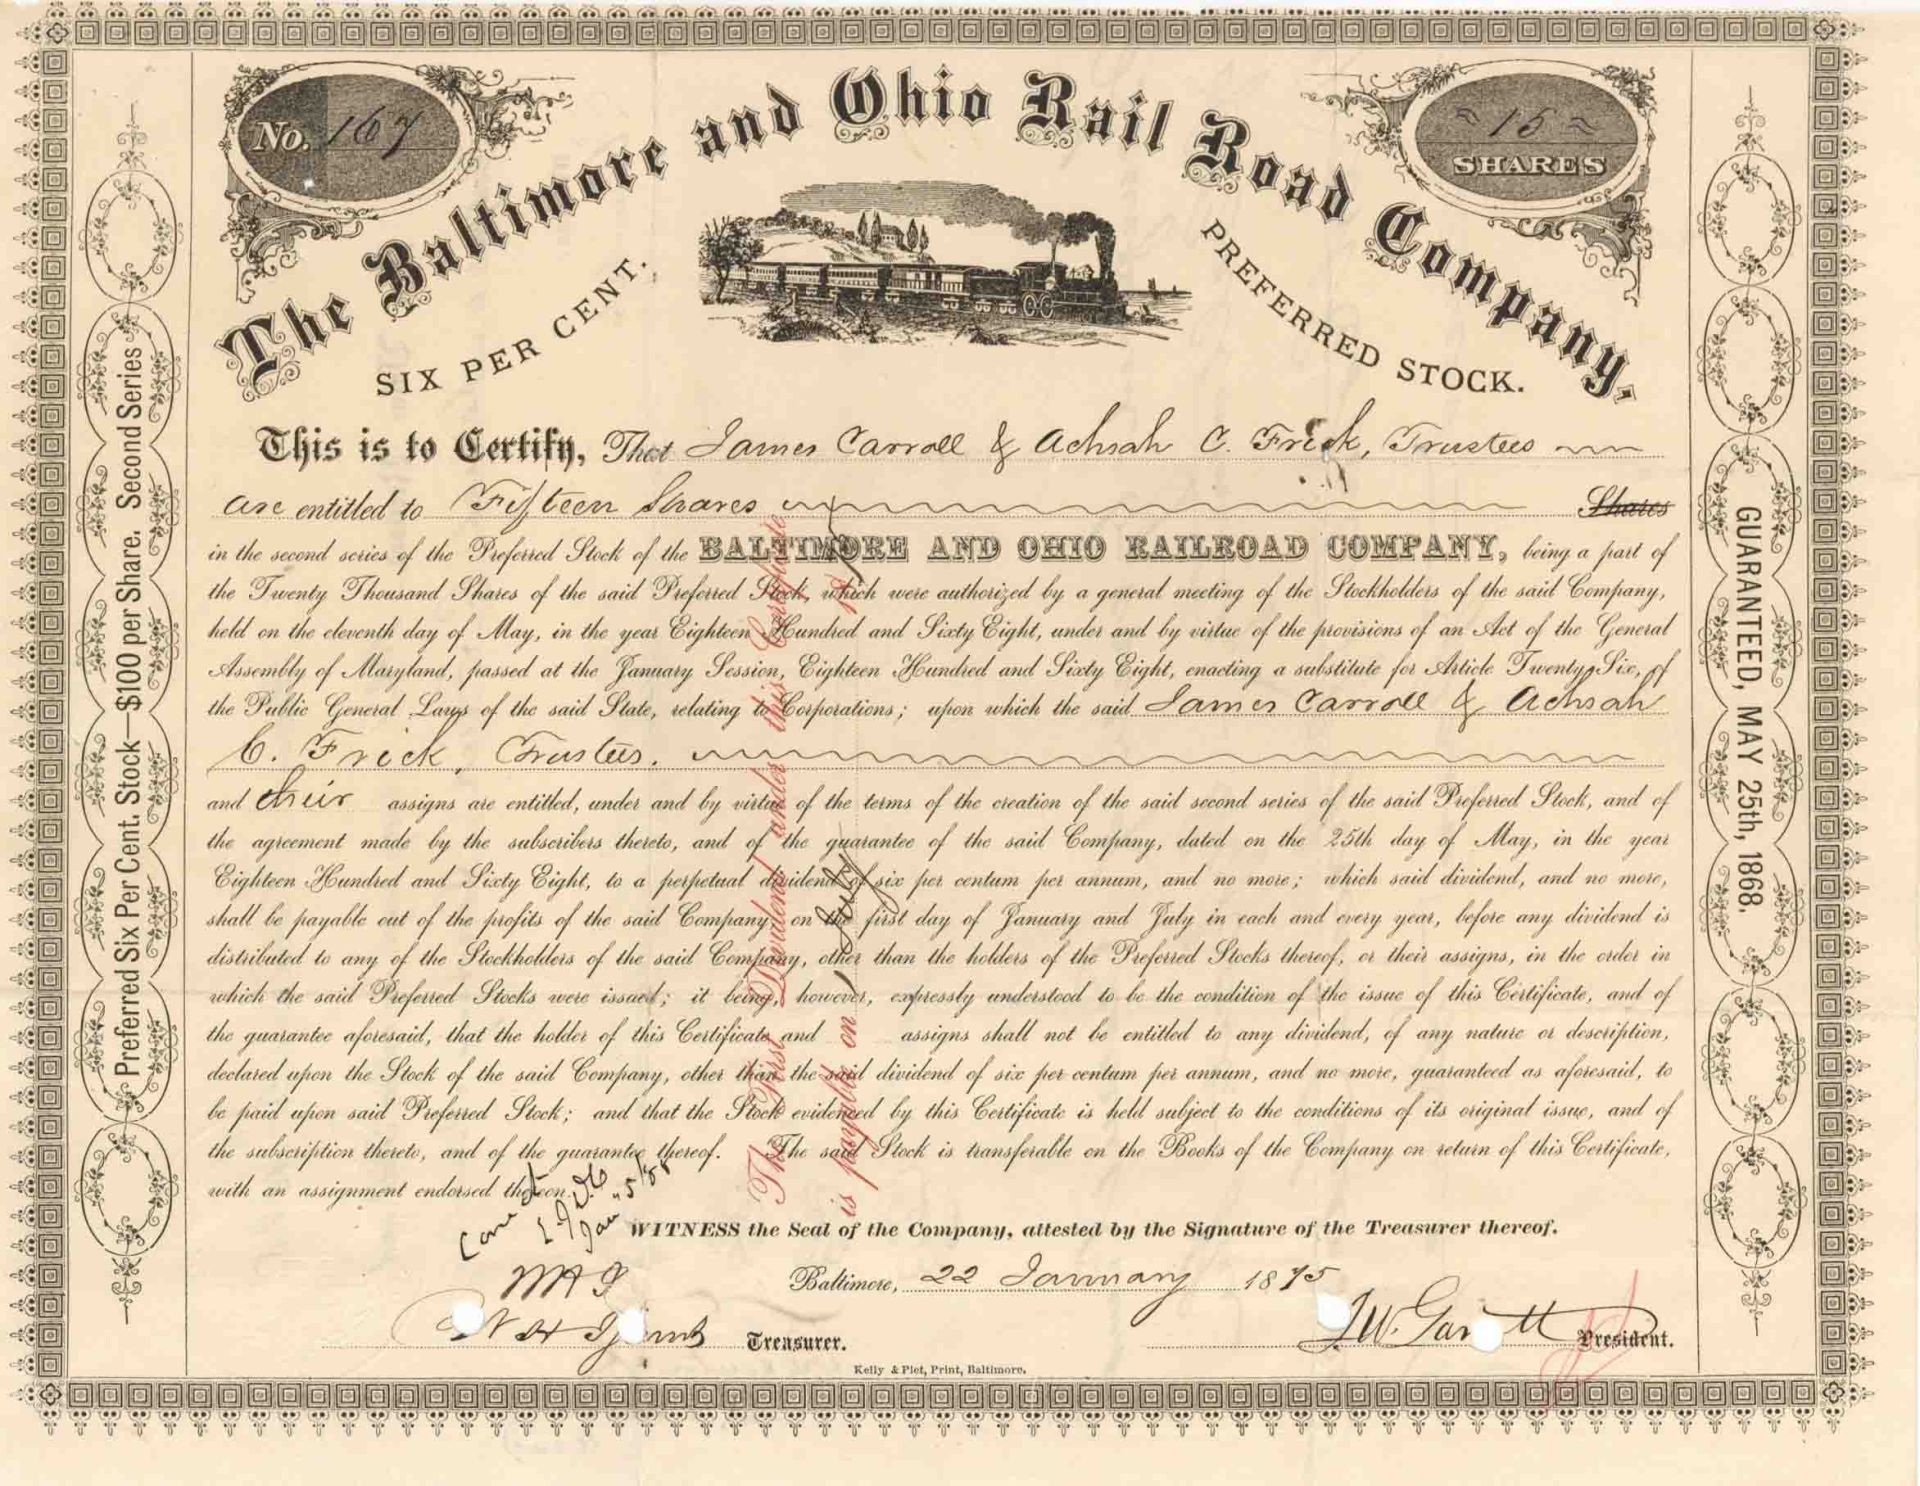 No. 167
≈ 15 ≈
SHARES
The Baltimore and Ohio Rail Road Company,
SIX PER CENT.
PREFERRED STOCK.
This is to Certify, That James Carroll & Achsah C. Frick, Trustees
are entitled to Fifteen Shares Shares
in the second series of the Preferred Stock of the BALTIMORE AND OHIO RAILROAD COMPANY, being a part of
the Twenty Thousand Shares of the said Preferred Stock, which were authorized by a general meeting of the Stockholders of the said Company,
held on the eleventh day of May, in the year Eighteen Hundred and Sixty Eight, under and by virtue of the provisions of an Act of the General
Assembly of Maryland, passed at the January Session, Eighteen Hundred and Sixty Eight, enacting a substitute for Article Twenty-Six, of
the Public General Laws of the said State, relating to Corporations; upon which the said James Carroll & Achsah
C. Frick, Trustees.
and their assigns are entitled, under and by virtue of the terms of the creation of the said second series of the said Preferred Stock, and of
the agreement made by the subscribers thereto, and of the guarantee of the said Company, dated on the 25th day of May, in the year
Eighteen Hundred and Sixty Eight, to a perpetual dividend of six per centum per annum, and no more; which said dividend, and no more,
shall be payable out of the profits of the said Company, on the first day of January and July in each and every year, before any dividend is
distributed to any of the Stockholders of the said Company, other than the holders of the Preferred Stocks thereof, or their assigns, in the order in
which the said Preferred Stocks were issued; it being, however, expressly understood to be the condition of the issue of this Certificate, and of
the guarantee aforesaid, that the holder of this Certificate and assigns shall not be entitled to any dividend, of any nature or description,
declared upon the Stock of the said Company, other than the said dividend of six per centum per annum, and no more, guaranteed as aforesaid, to
be paid upon said Preferred Stock; and that the Stock evidenced by this Certificate is held subject to the conditions of its original issue, and of
the subscription thereto, and of the guarantee thereof. The said Stock is transferable on the Books of the Company on return of this Certificate,
with an assignment endorsed thereon.
The First Dividend under this Certificate
is payable on 1 July 187
WITNESS the Seal of the Company, attested by the Signature of the Treasurer thereof.
Baltimore, 22 January 1875
Treasurer.
J.W. Garrett President.
Kelly & Piet, Print, Baltimore.
Preferred Six Per Cent. Stock—$100 per Share. Second Series
GUARANTEED, MAY 25th, 1868.